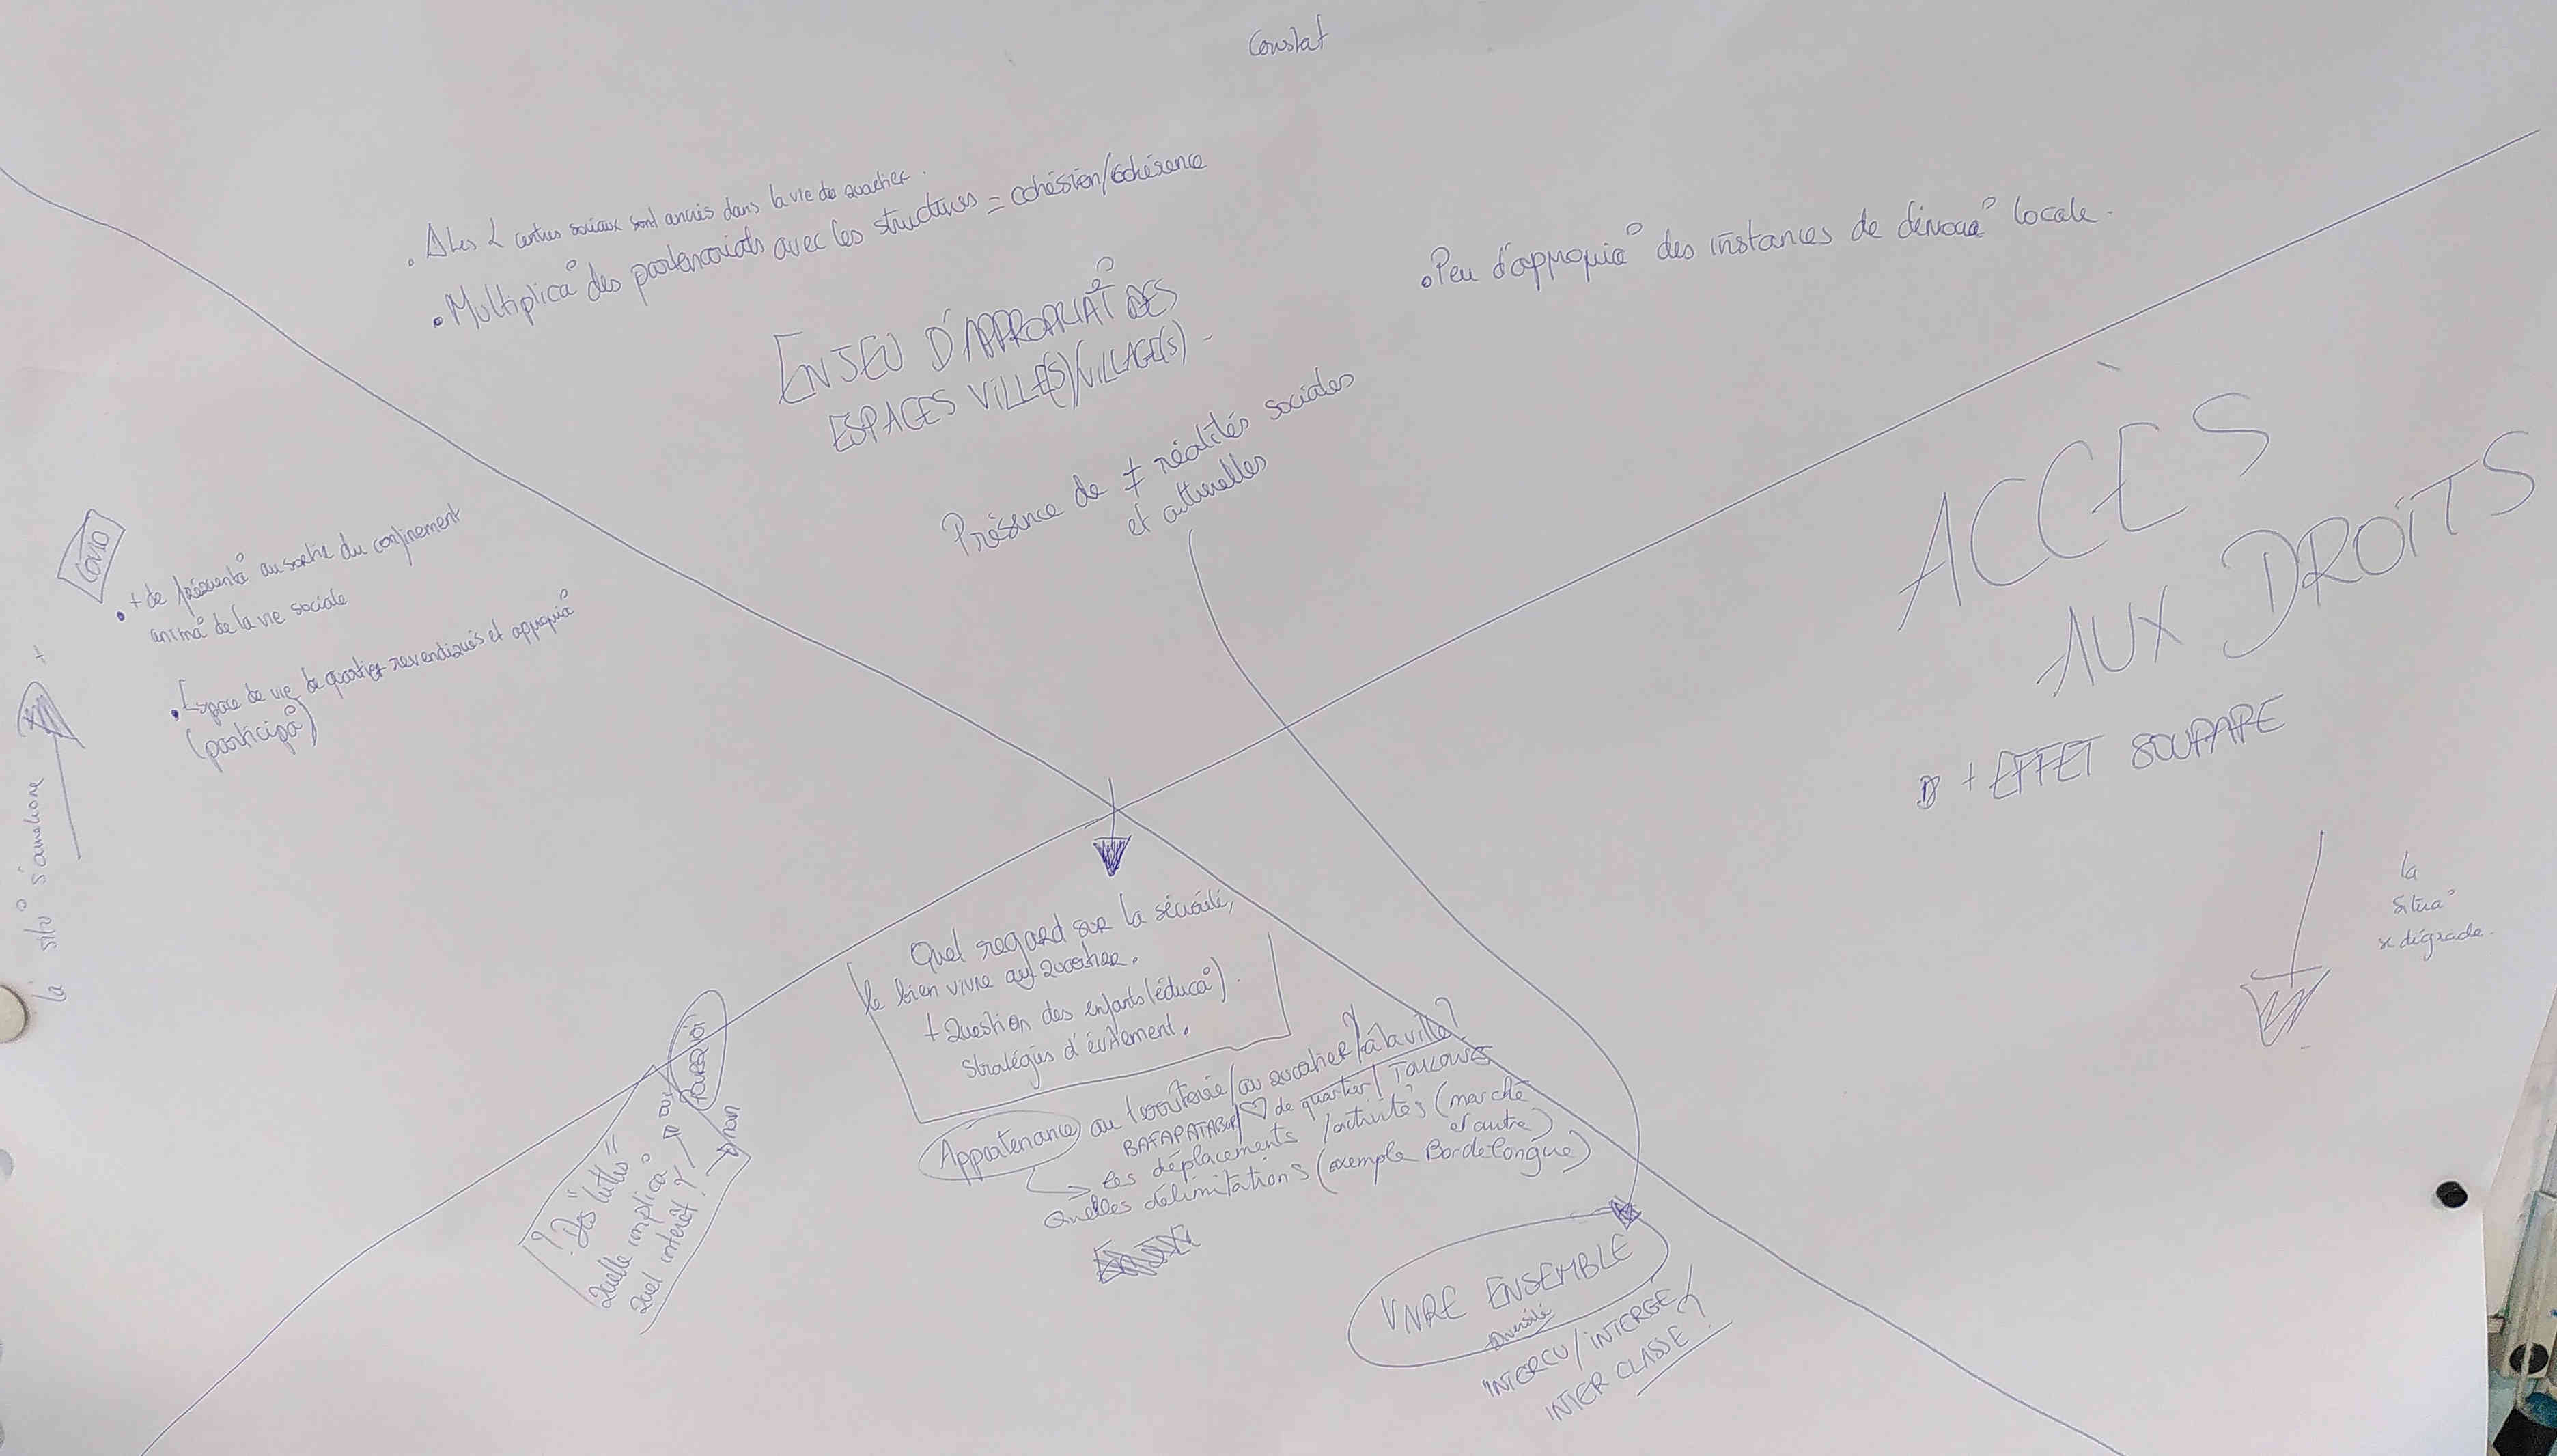 Constat
• Δ Les 2 centres sociaux sont ancrés dans la vie de quartier.
• Multiplica° des partenariats avec les structures = cohésion/cohérence
ENJEU D'APPROPRIAT° DES
ESPACES VILLE(S)/VILLAGE(S) -
Présence de ≠ réalités sociales
et culturelles
• Peu d'appropria° des instances de démocra° locale.
COVID
• + de fréquenta° au sortir du confinement
anima° de la vie sociale
• Espace de vie de quartier revendiqués et appropria°
(participa°)
la situ° s'améliore +
ACCÈS
AUX DROITS
+ EFFET SOUPAPE
la
situa°
se dégrade.
Quel regard sur la sécurité,
le bien vivre au quartier.
+ Question des enfants (éduca°).
Stratégies d'évitement.
Appartenance au territoire/au quartier/à la ville?
BAFAPATABOR/♡ de quartier/TOULOUSE
Les déplacements /activités (marché
et autre)
Quelles délimitations (exemple Bordelongue)
? "Des luttes"
Quelle implica° → oui POURQUOI
Quel intérêt? → non
VIVRE ENSEMBLE
Diversité
INTERCU/INTERGE
INTER CLASSE?